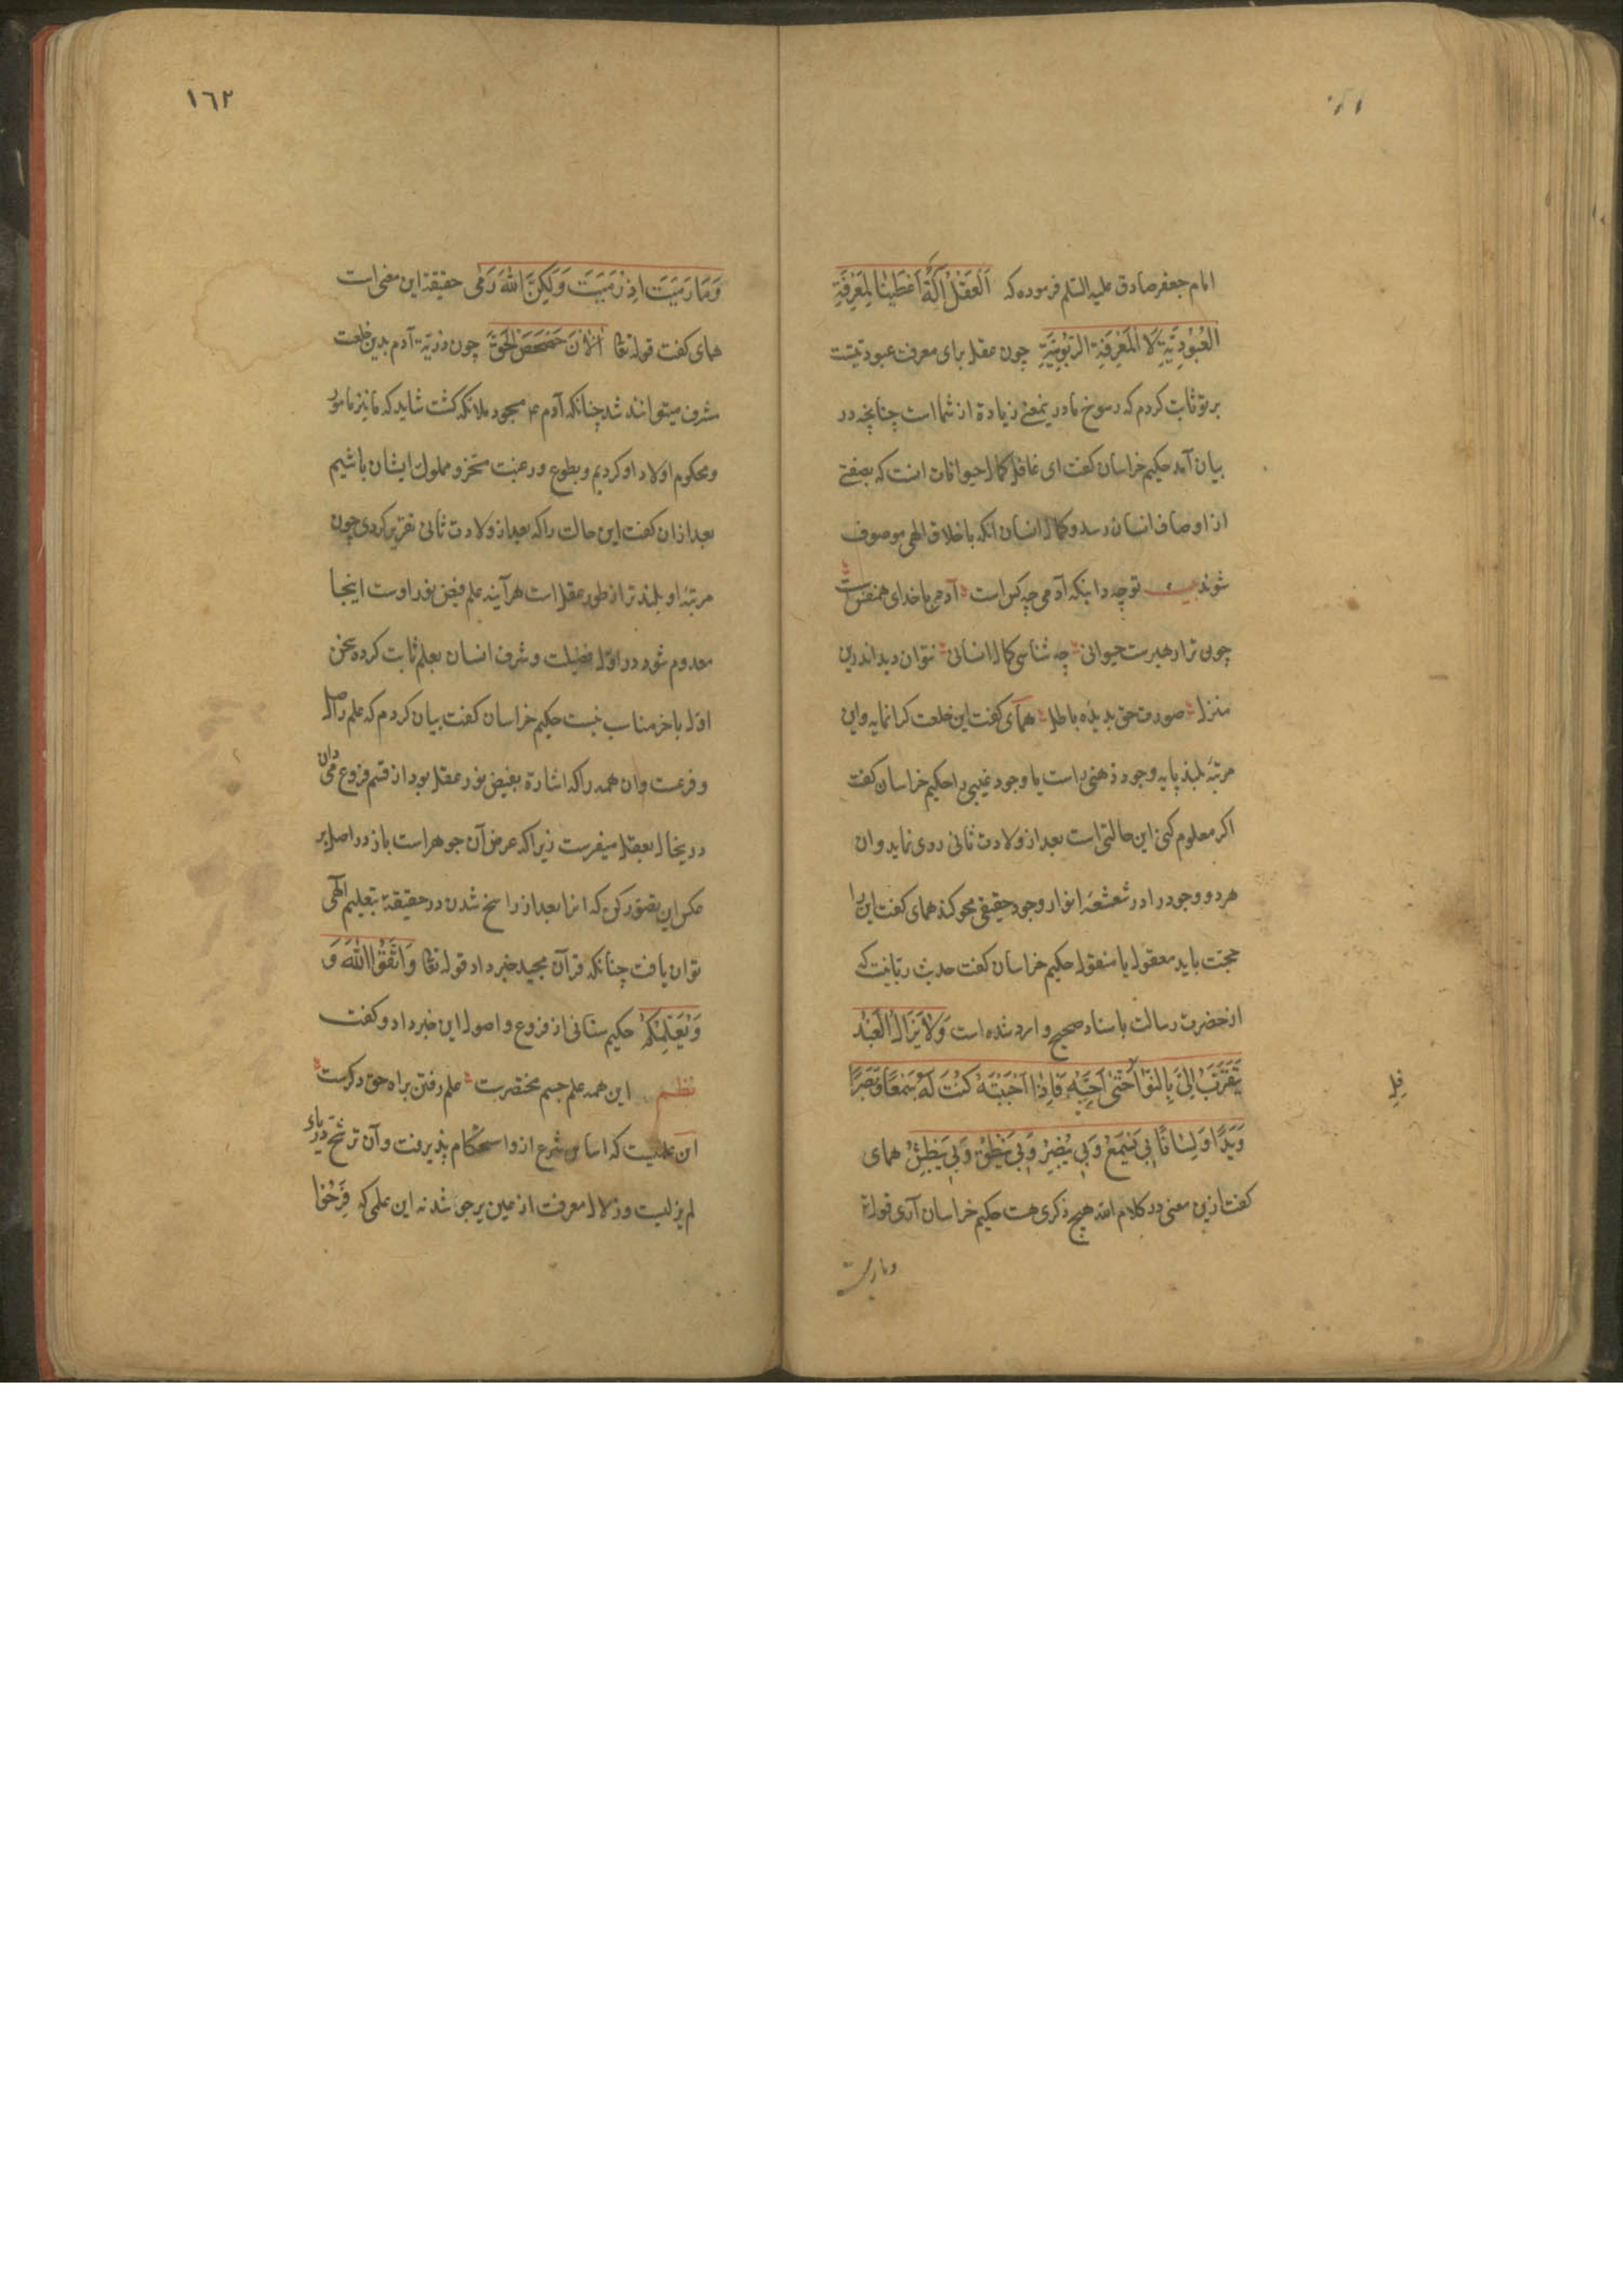 امام جعفر صادق علیه السلام فرموده که اَلْعَقْلُ آلَةٌ اَعْطَیْنَا لِمَعْرِفَةِ
الْعُبُودِیَّةِ لَا لِمَعْرِفَةِ الرُّبُوبِیَّةِ چون عقل برای معرفت عبودیتست
بر تو ثابت کردم که رسوخ ما در یمعنی زیادة از شما است چنانچه در
بیان آمد حکیم خراسان کفت ای غافل کمال حیوانات انست که بصفتی
از اوصاف انسان رسد و کمال انسان انکه باخلاق الهی موصوف
شوند بیت تو چه دانیکه آدمی چه کس است آدمی با خدای همنفس است
چون ترا رهبرست حیوانی چه شناسی کمال انسانی نتوان دید اندرین
منزل صورت حق بدیده باطل همای کفت این خلعت کرانمایه و این
مرتبۀ بلند پایه وجود ذهنی راست یا وجود غیبی را حکیم خراسان کفت
اکر معلوم کنی این حالتی است بعد از ولادت ثانی روی نماید و ان
هر دو وجود را در شعشعۀ انوار وجود حقیقی محو کند همای کفت این را
حجت باید معقول یا منقول حکیم خراسان کفت حدیث ربانیست که
از حضرت رسالت باسناد صحیح وارد شده است وَلَا یَزَالُ الْعَبْدُ
یَتَقَرَّبُ اِلَیَّ بِالنَّوَا حَتّٰی اُحِبَّهُ فَاِذَا اَحْبَبْتَهُ کُنْتُ لَهُ سَمْعًا وَ بَصَرًا
فِلِ
وَیَدًا وَ لِسَانًا بِی یَسْمَعُ وَ بِی یُبْصِرُ وَ بِی یَنْطِقُ وَ بِی یَبْطِشُ همای
کفت ازین معنی در کلام الله هیچ ذکری هست حکیم خراسان آری قوله تع
وما رمیت
١٦٢
وَمَا رَمَیْتَ اِذْ رَمَیْتَ وَلٰکِنَّ اللّٰهَ رَمٰی حقیقة این معنی است
همای کفت قوله تعا اَلْاٰنَ حَصْحَصَ الْحَقُّ چون ذریّة آدم بدین خلعت
مشرف میتوانند شد چنانکه آدم ع مسجود ملائکه کشت شاید که ما نیز مامور
و محکوم اولاد او کردیم و بطوع و رغبت مسخر و مملوک ایشان باشیم
بعد از ان کفت این حالت را که بعد از ولادت ثانی تقریر کردی چون
مرتبۀ او بلند تر از طور عقل است هرآینه علم فیض نور اوست اینجا
معدوم شود در اول فضیلت و شرف انسان بعلم ثابت کرده سخن
اول باخر مناسب نیست حکیم خراسان کفت بیان کردم که علم را اصل
و فرعست و ان همه را که اشارة بفیض نور عقل بود از قسم فروع می دان
در یخال بعقل میفرست زیرا که عرض آن جوهر است باز در اصل بر
عکس این تصور کن که انرا بعد از راسخ شدن در حقیقة بتعلیم الهی
توان یافت چنانکه قرآن مجید خبر داد قوله تعا وَاتَّقُوا اللّٰهَ وَ
وَ یُعَلِّمُکُمُ حکیم سنائی از فروع و اصول این خبر داد و کفت
نظم این همه علم جسم مختصرست علم رفتن براه حق دکرست
این علمیست که اساس شرع ازو استحکام پذیرفت و آن ترشح دریای
لم یزلیست و زلال معرفت از عین برجا شد نه این علمی که فَرِحُوا